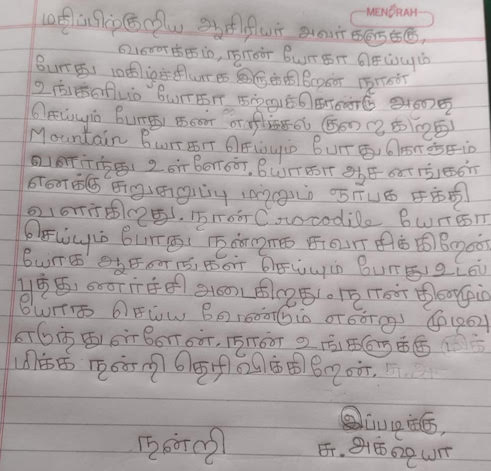 MENORAH
மதிப்பிற்குரிய ஆசிரியர் அவர்களுக்கு,
வணக்கம், நான் யோகா செய்யும்
போது மகிழ்ச்சியாக இருக்கிறேன் நான்
உங்களிடம் யோகா கற்றுக்கொண்டு அதை
செய்யும் போது கண் எரிச்சல் குறைகிறது
Mountain யோகா செய்யும் போது கொஞ்சம்
வளர்ந்து உள்ளேன். யோகா ஆசனங்கள்
எனக்கு சுறுசுறுப்பு மற்றும் ஞாபக சக்தி
வளர்கிறது. நான் Crocodile யோகா
செய்யும் போது நன்றாக சுவாசிக்கிறேன்
யோக ஆசனங்கள் செய்யும் போது உடல்
புத்துணர்ச்சி அடைகிறது. நான் தினமும்
யோக செய்ய வேண்டும் என்று முடிவு
எடுத்து உள்ளேன். நான் உங்களுக்கு
மிக்க நன்றி தெரிவிக்கிறேன்.
இப்படிக்கு,
நன்றி சு. அக்ஷயா